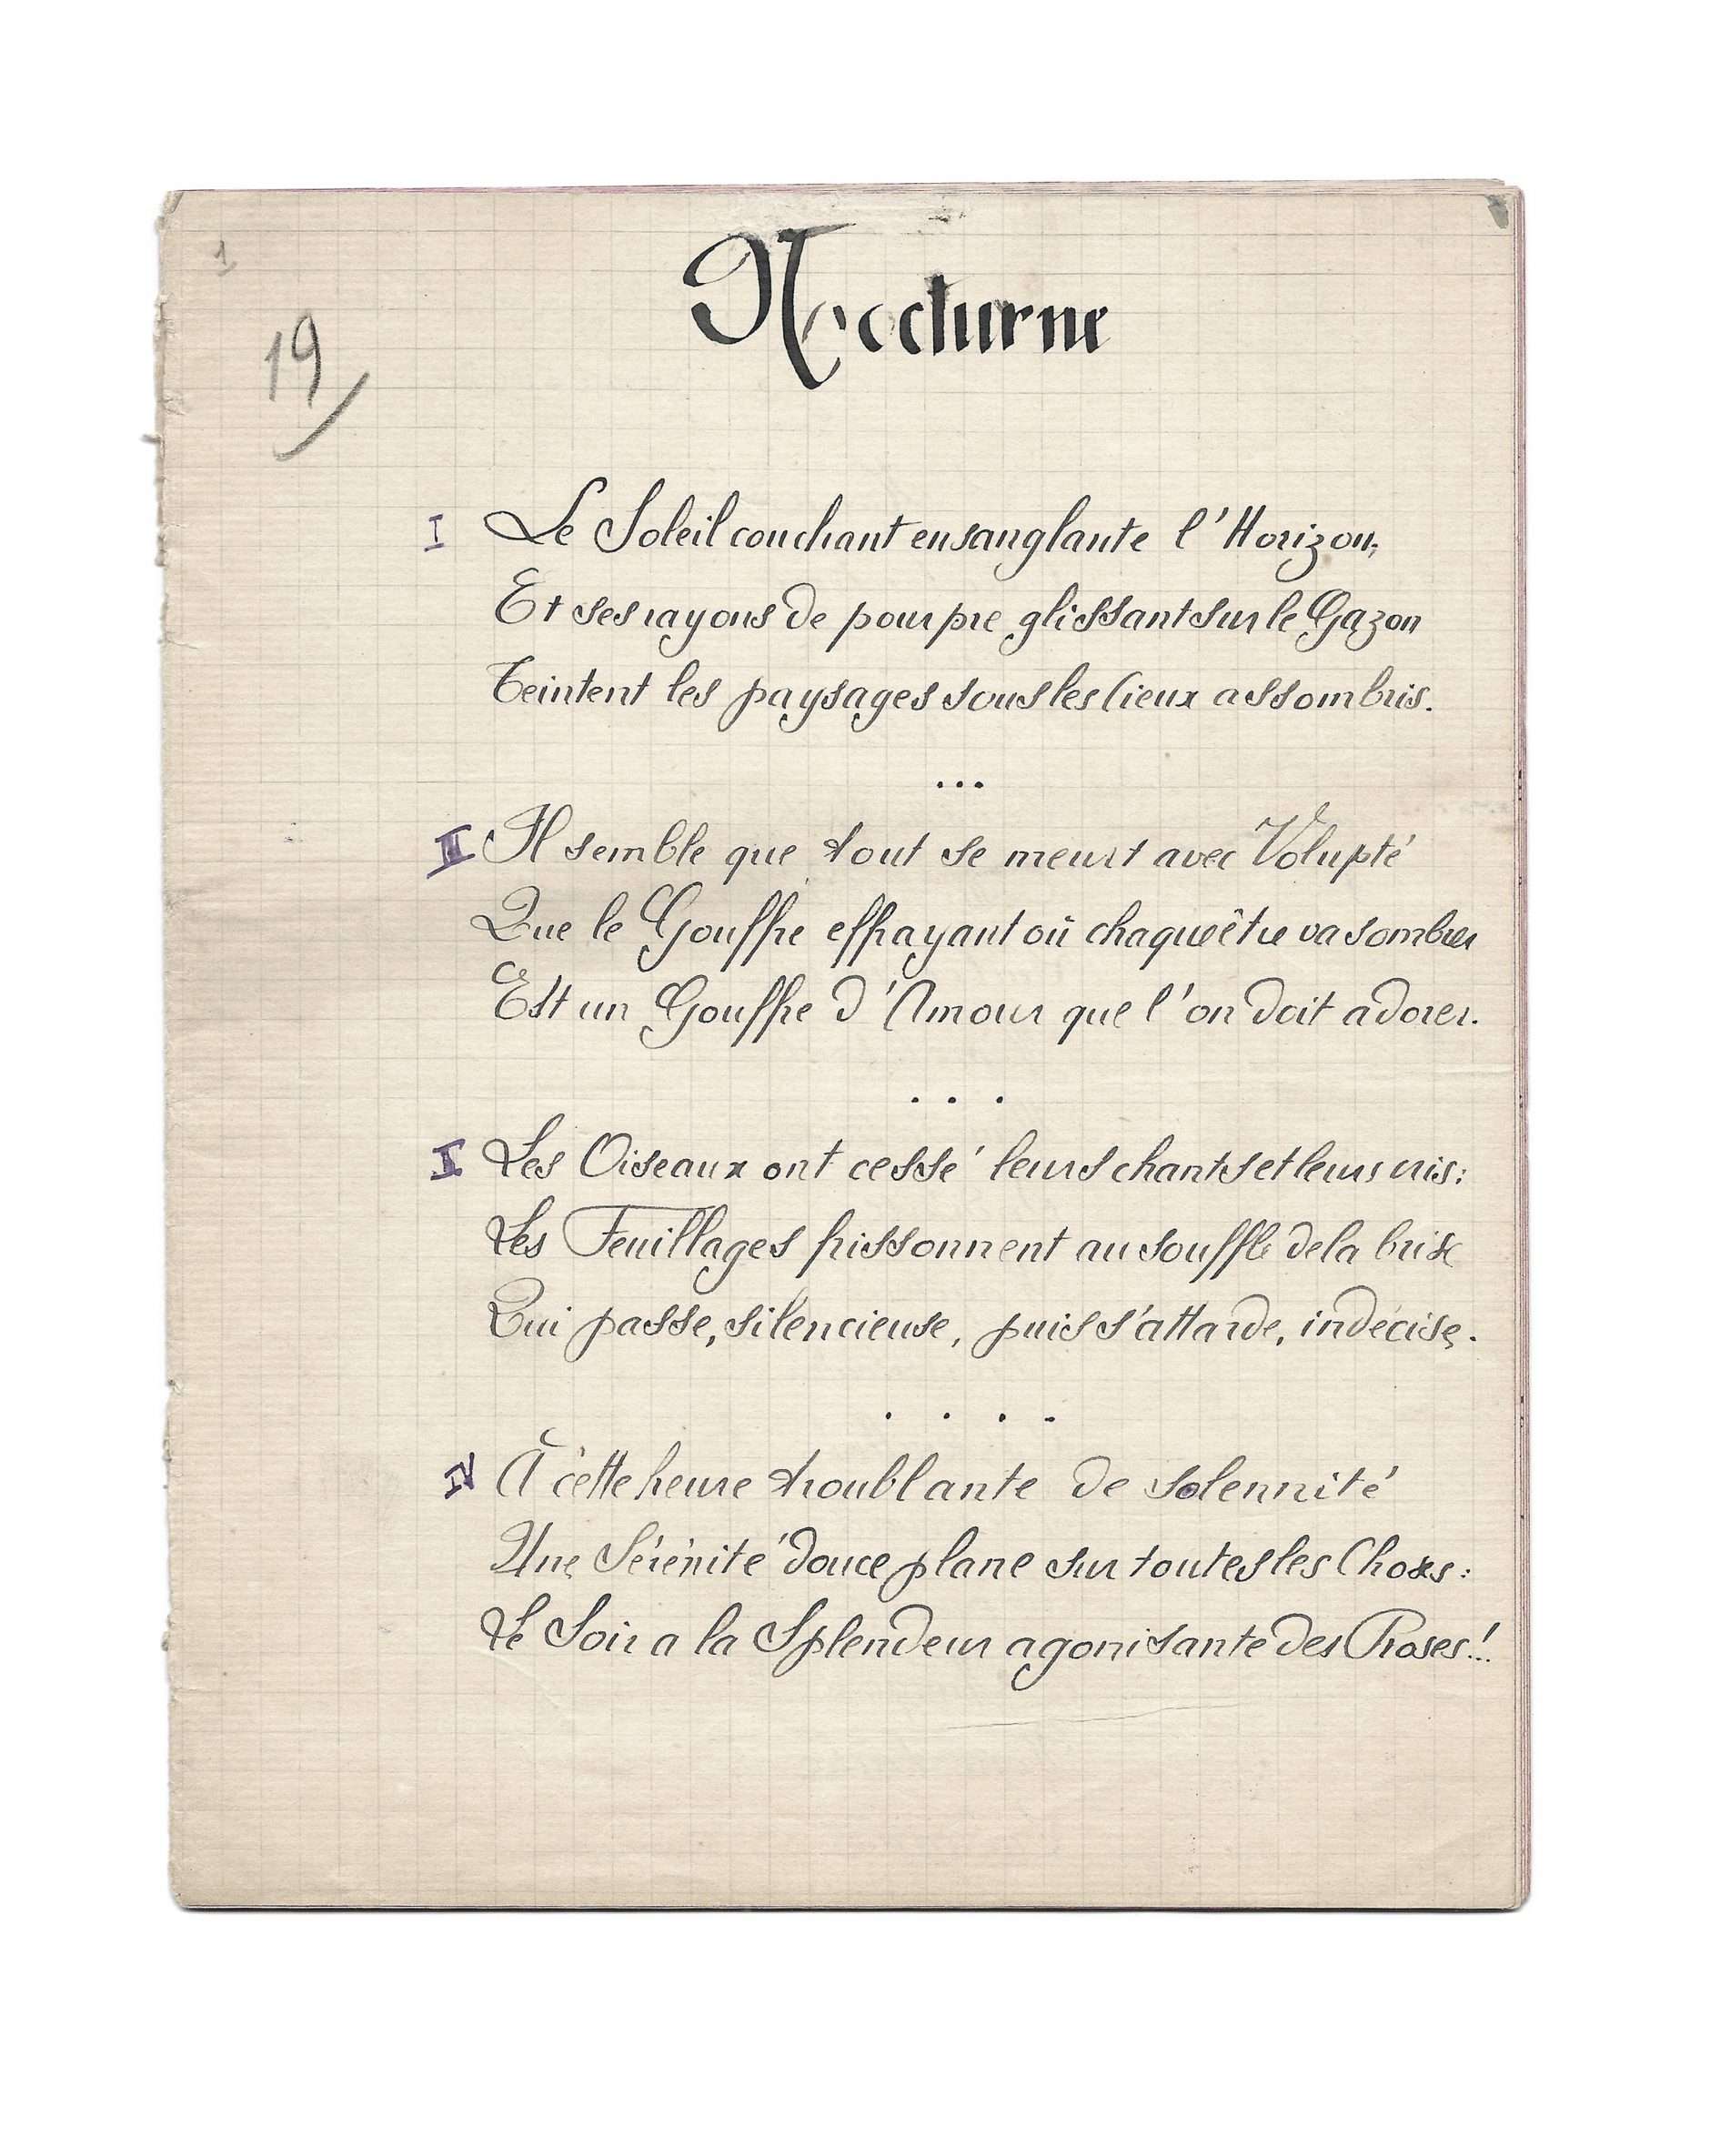 1
Nocturne
19
I Le Soleil couchant ensanglante l'Horizon;
Et ses rayons de pourpre glissant sur le Gazon
Teintent les paysages sous les Cieux assombris.
...
III Il semble que tout se meurt avec Volupté
Que le Gouffre effrayant où chaque être va sombrer
Est un Gouffre d'Amour que l'on doit adorer.
...
II Les Oiseaux ont cessé leurs chants et leurs cris:
Les Feuillages frissonnent au souffle de la brise
Qui passe, silencieuse, puis s'attarde, indécise.
....
IV À cette heure troublante de solennité
Une Sérénité douce plane sur toutes les Choses:
Le Soir a la Splendeur agonisante des Roses!..